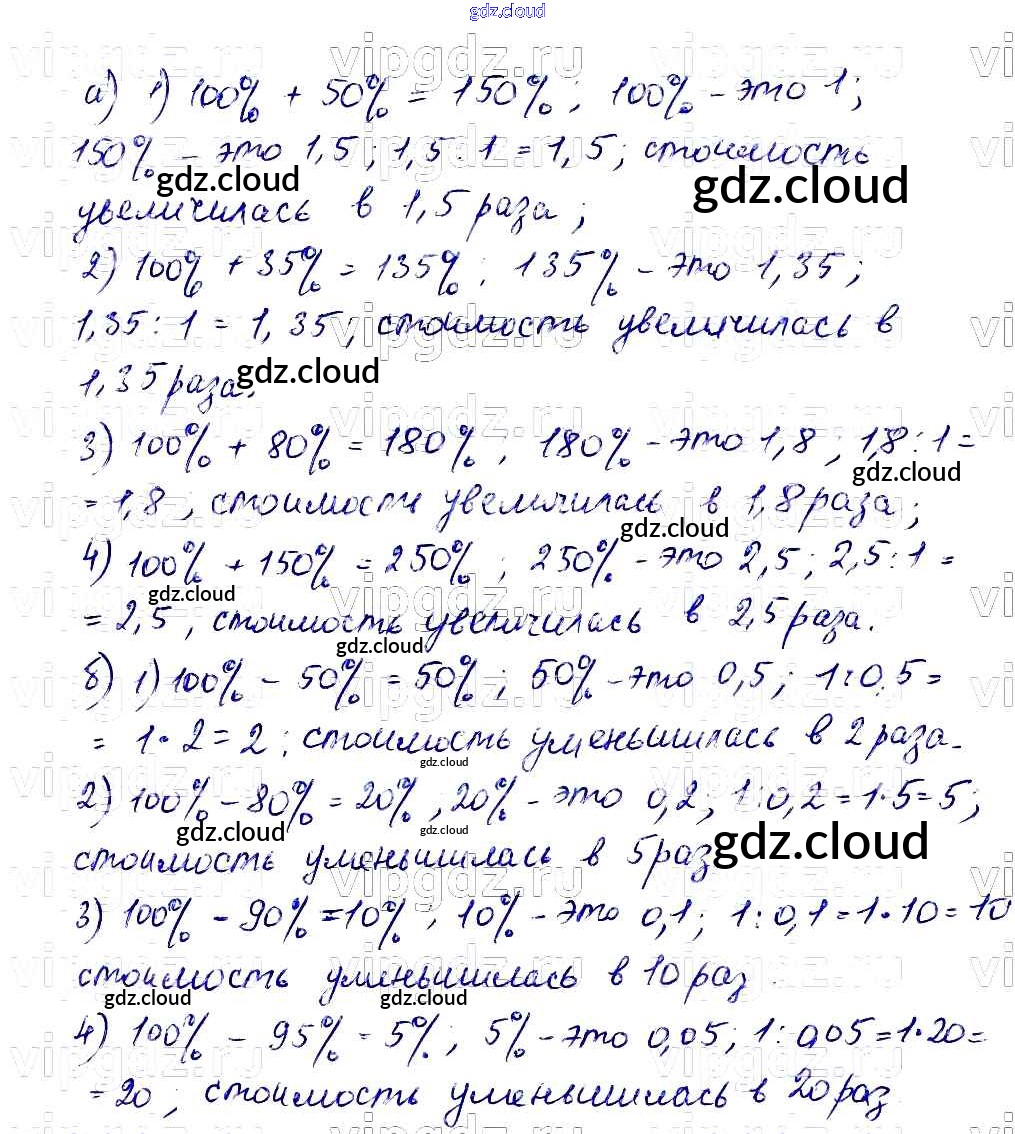 gdz.cloud
vipgdz.ru
а) 1) 100% + 50% = 150%; 100% - это 1;
150% - это 1,5; 1,5 : 1 = 1,5; стоимость
gdz.cloud gdz.cloud
увеличилась в 1,5 раза;
2) 100% + 35% = 135%; 135% - это 1,35;
1,35 : 1 = 1,35; стоимость увеличилась в
1,35 раза; gdz.cloud
3) 100% + 80% = 180%; 180% - это 1,8; 1,8 : 1 =
gdz.cloud
= 1,8, стоимость увеличилась в 1,8 раза;
gdz.cloud
4) 100% + 150% = 250%; 250% - это 2,5; 2,5 : 1 =
gdz.cloud
= 2,5, стоимость увеличилась в 2,5 раза.
gdz.cloud
б) 1) 100% - 50% = 50%; 50% - это 0,5; 1 : 0,5 =
= 1 · 2 = 2; стоимость уменьшилась в 2 раза.
gdz.cloud
2) 100% - 80% = 20%, 20% - это 0,2; 1 : 0,2 = 1 · 5 = 5;
gdz.cloud gdz.cloud gdz.cloud
стоимость уменьшилась в 5 раз
3) 100% - 90% = 10%, 10% - это 0,1; 1 : 0,1 = 1 · 10 = 10
стоимость уменьшилась в 10 раз.
gdz.cloud gdz.cloud
4) 100% - 95% = 5%; 5% - это 0,05; 1 : 0,05 = 1 · 20 =
= 20; стоимость уменьшилась в 20 раз